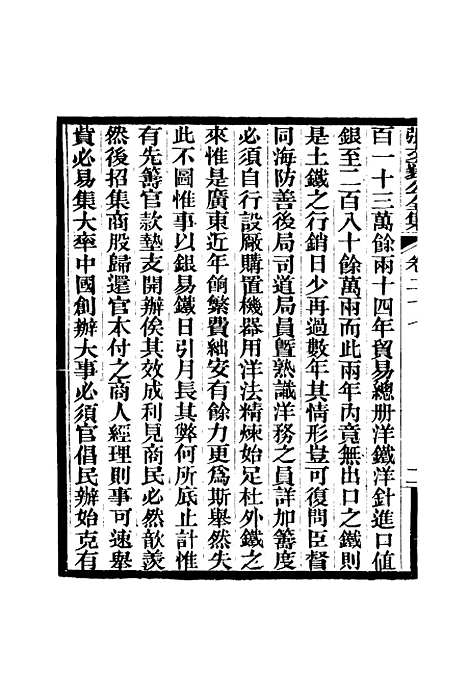 張文襄公全集 卷二十七 二
百一十三萬餘兩十四年貿易總册洋鐵洋針進口值
銀至二百八十餘萬兩而此兩年內竟無出口之鐵則
是土鐵之行銷日少再過數年其情形豈可復問臣督
同海防善後局司道局員暨熟識洋務之員詳加籌度
必須自行設厰購置機器用洋法精煉始足杜外鐵之
來惟是廣東近年餉繁費絀安有餘力更爲斯舉然失
此不圖惟事以銀易鐵日引月長其弊何所底止計惟
有先籌官款墊支開辦俟其效成利見商民必然歆羨
然後招集商股歸還官本付之商人經理則事可速舉
貲必易集大率中國創辦大事必須官倡民辦始克有